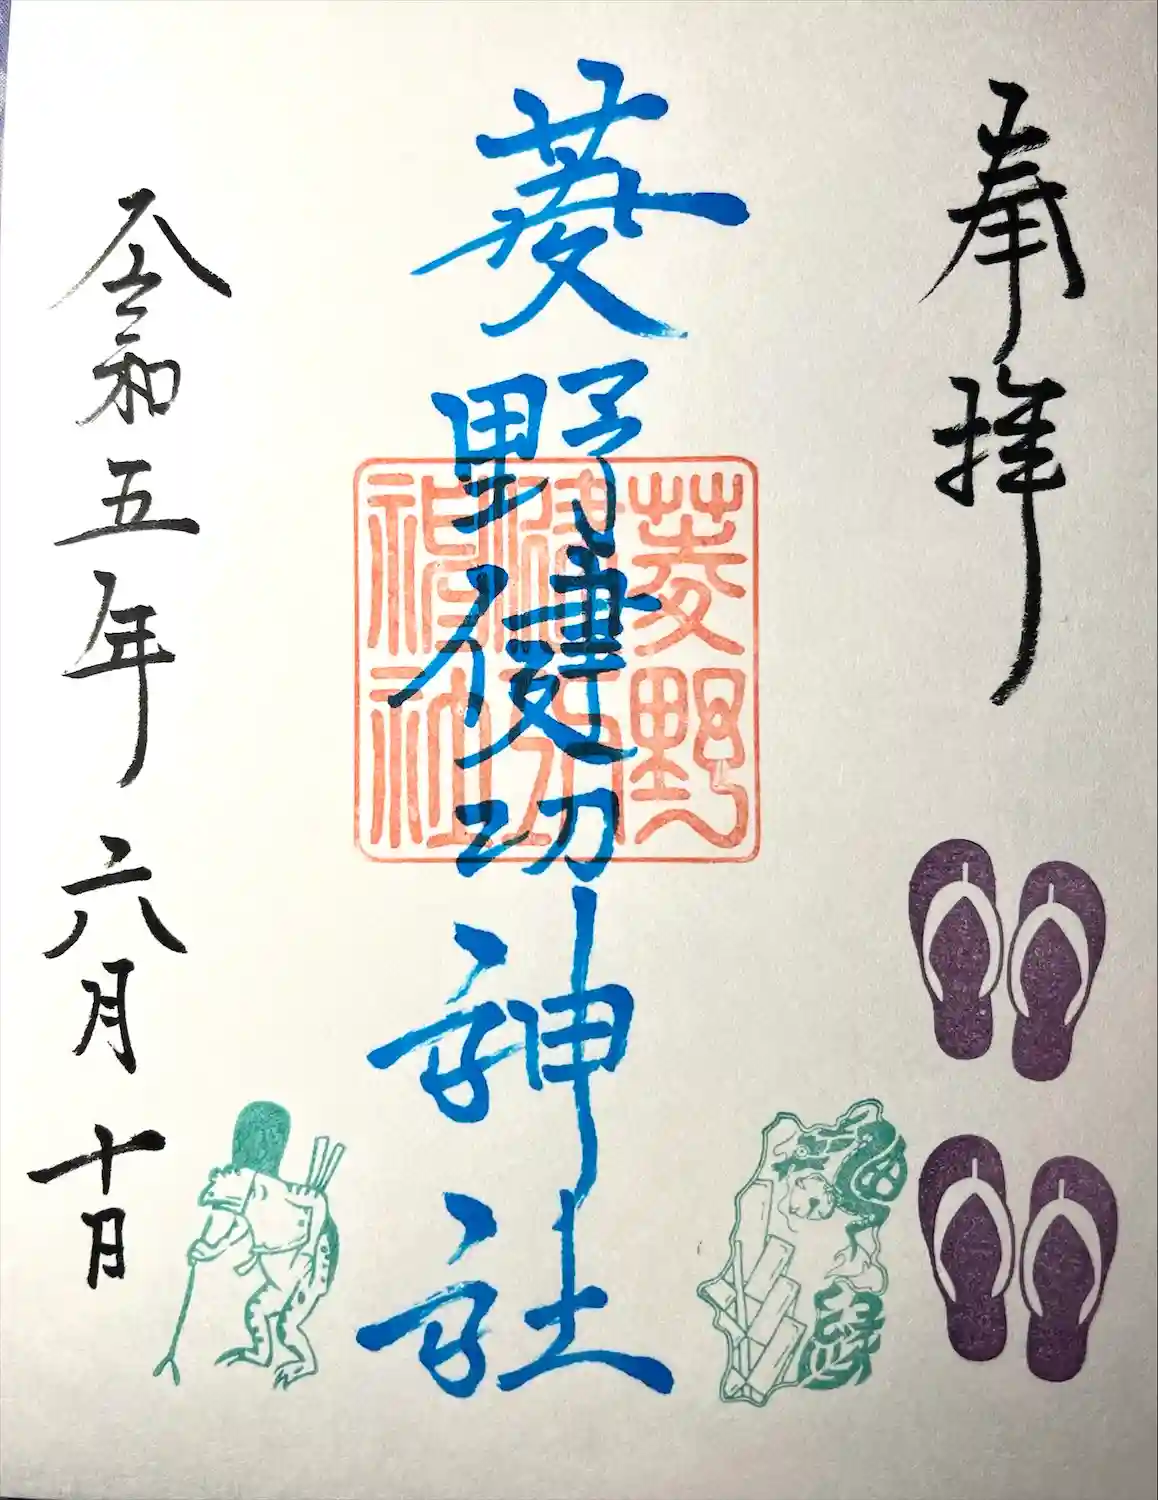 奉拝
菱野健功神社
菱野健功神社
令和五年六月十日